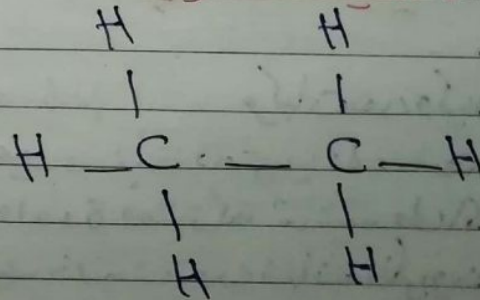 H H
| |
H — C — C — H
| |
H H